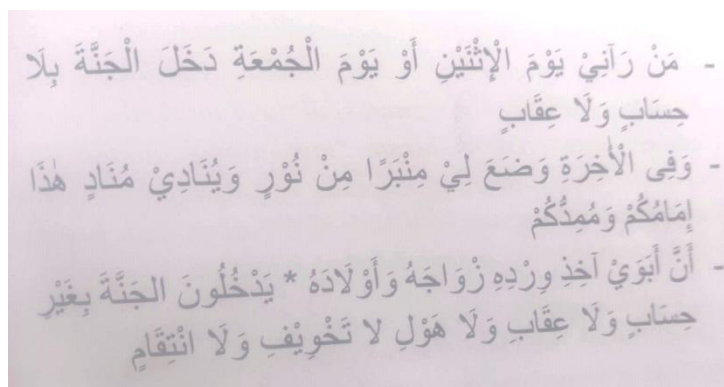 - مَنْ رَآنِيْ يَوْمَ الْإِثْنَيْنِ أَوْ يَوْمَ الْجُمْعَةِ دَخَلَ الْجَنَّةَ بِلَا
حِسَابٍ وَلَا عِقَابٍ
- وَفِى الْأٰخِرَةِ وَضَعَ لِيْ مِنْبَرًا مِنْ نُوْرٍ وَيُنَادِيْ مُنَادٍ هٰذَا
إِمَامُكُمْ وَمُمِدُّكُمْ
- أَنَّ أَبَوَيْ آخِذِ وِرْدِهِ زْوَاجَهُ وَأَوْلَادَهُ * يَدْخُلُونَ الجَنَّةَ بِغَيْرِ
حِسَابٍ وَلَا عِقَابِ وَلَا هَوْلِ لا تَخْوِيْفِ وَلَا انْتِقَامٍ